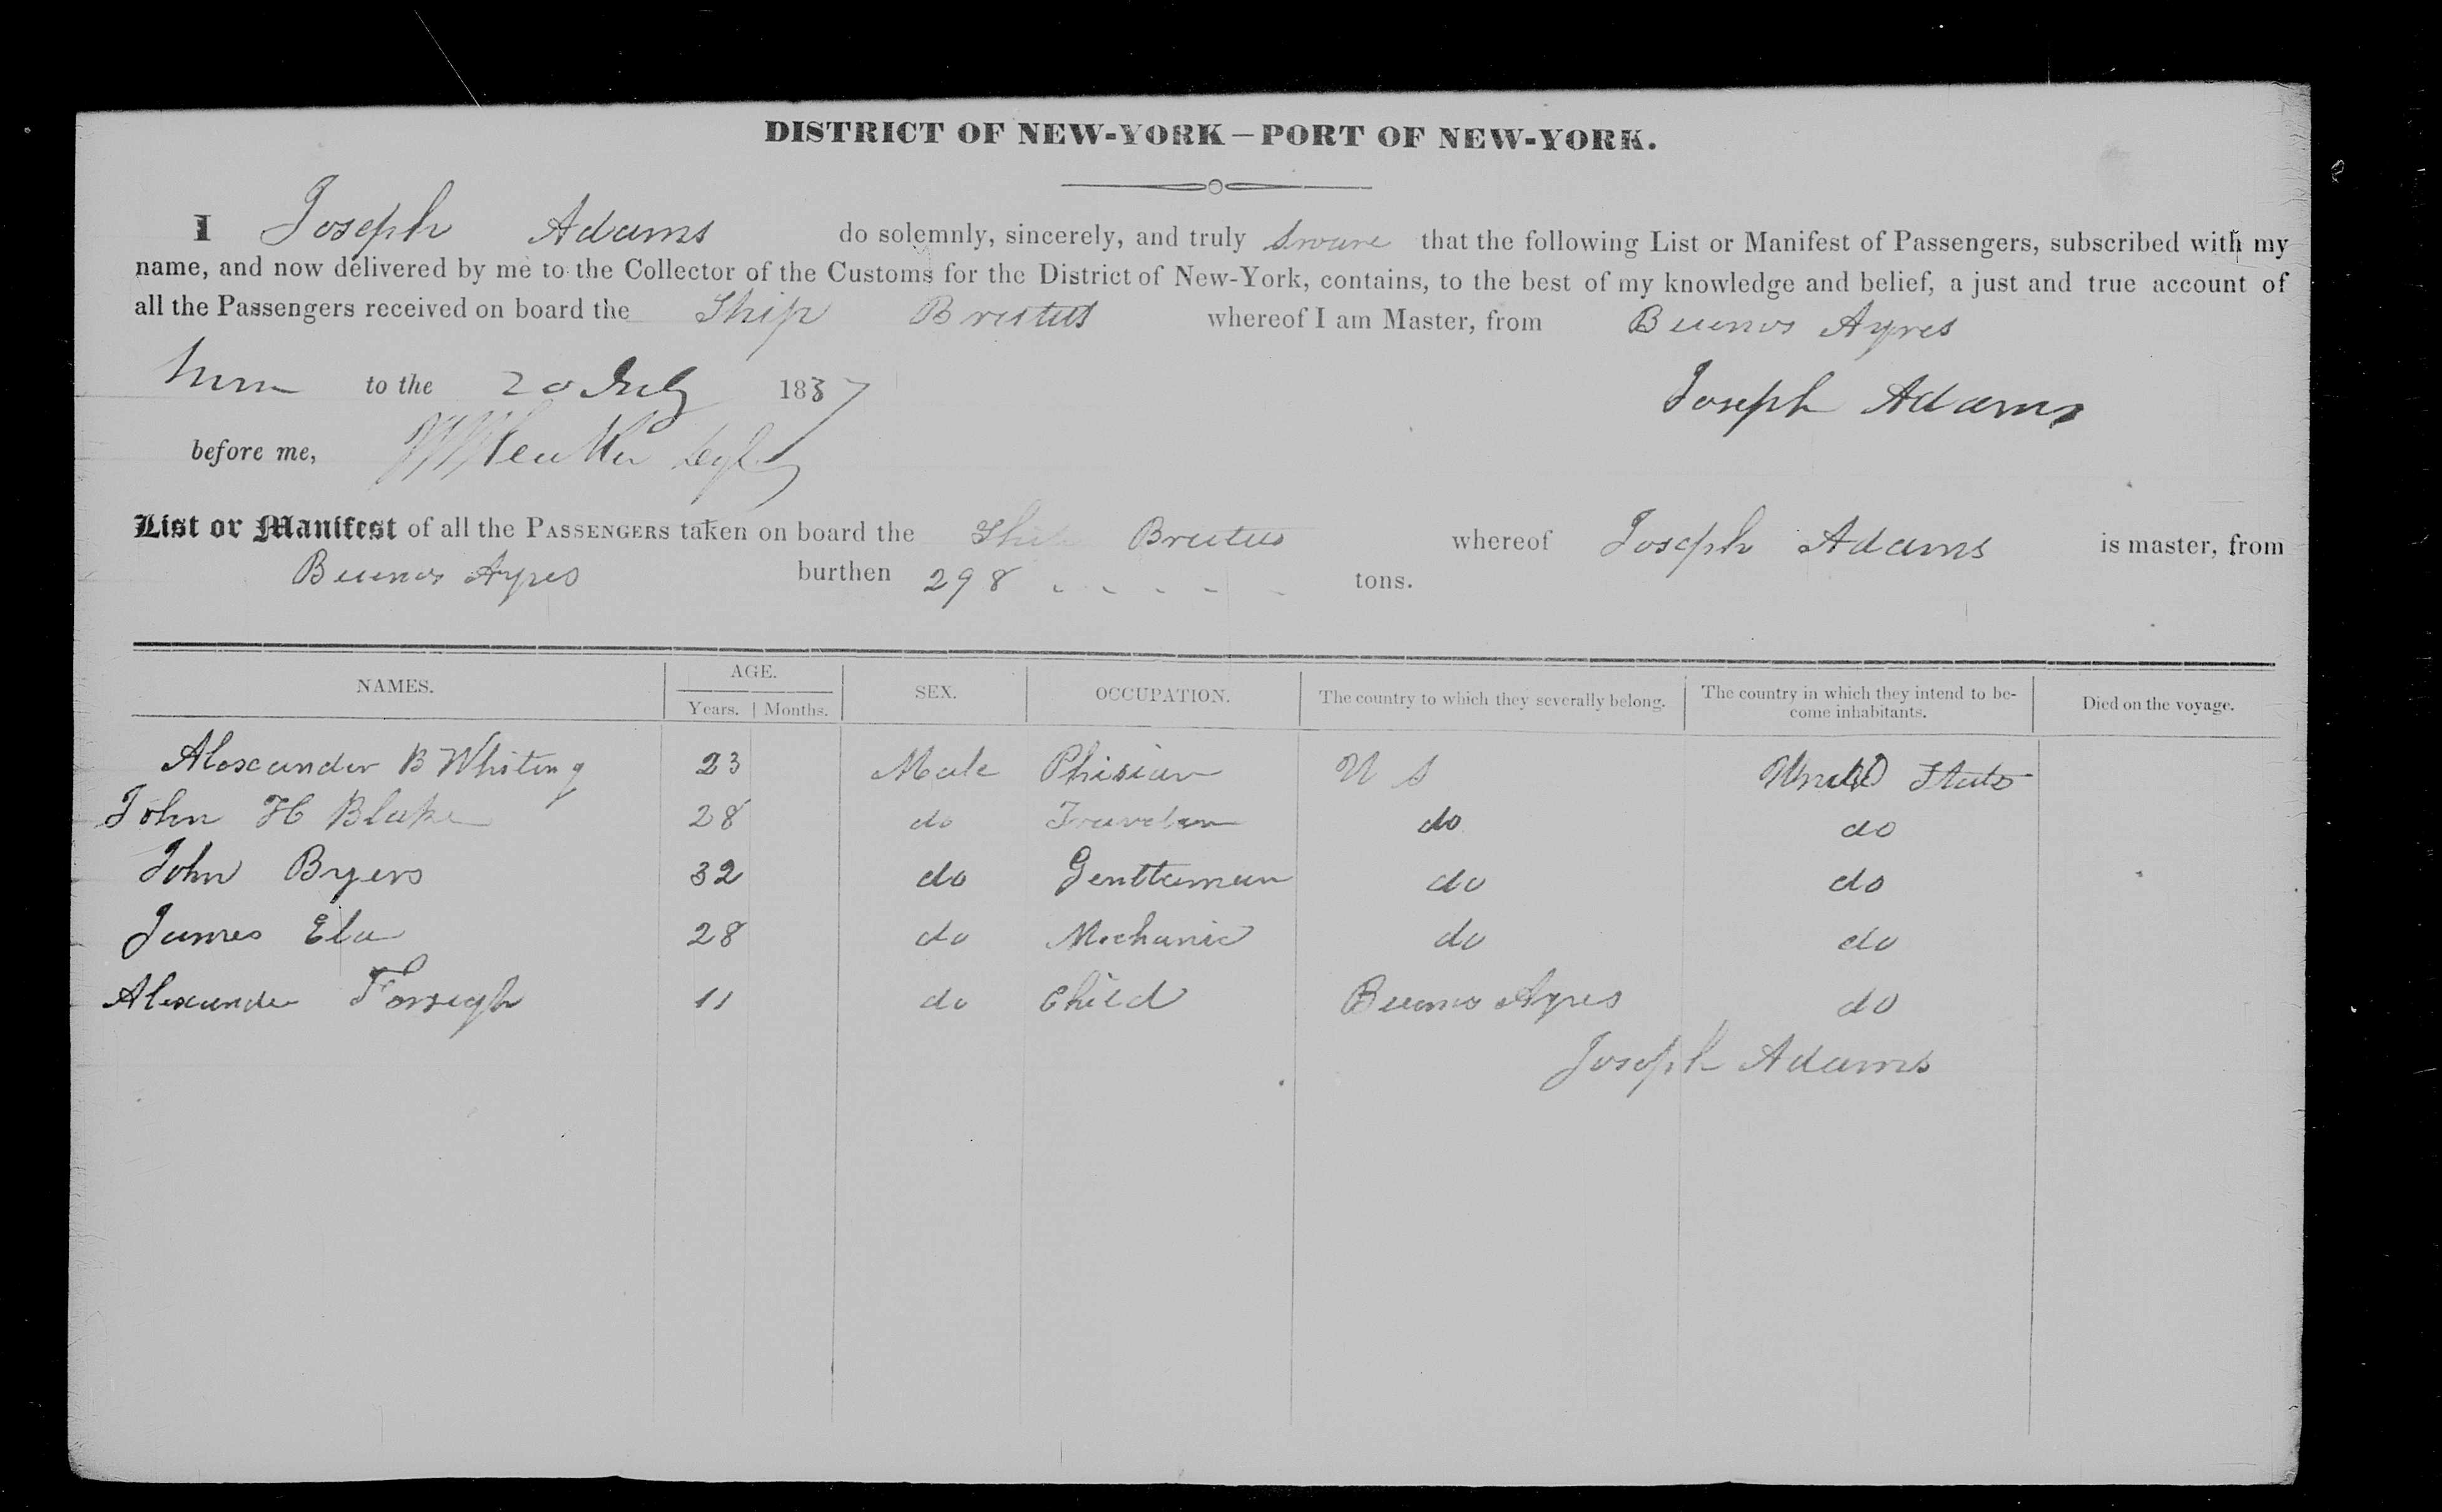 DISTRICT OF NEW-YORK—PORT OF NEW-YORK.
I Joseph Adams do solemnly, sincerely, and truly Sware that the following List or Manifest of Passengers, subscribed with my
name, and now delivered by me to the Collector of the Customs for the District of New-York, contains, to the best of my knowledge and belief, a just and true account of
all the Passengers received on board the Ship Brutus whereof I am Master, from Buenos Ayres
to the 20 July 1837 Joseph Adams
before me,
List or Manifest of all the PASSENGERS taken on board the Ship Brutus whereof Joseph Adams is master, from
Buenos Ayres burthen 298 tons.
NAMES. AGE. Years. Months. SEX. OCCUPATION. The country to which they severally belong. The country in which they intend to become inhabitants. Died on the voyage.
Alexander B Whiting 23 Male Phisian U S United States
John H Blake 28 do do do
John Byers 32 do Genttleman do do
James Ela 28 do Mechanic do do
Alexander 11 do Child Buenos Ayres do
Joseph Adams